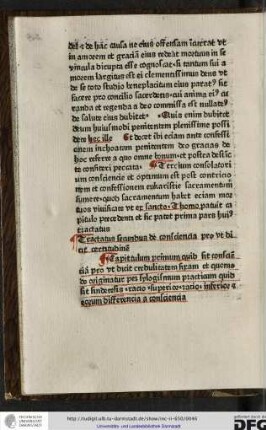 dei et de hac causa ne eius offensam incurrat vt
in amorem et graciam eius redeat mortuum in se
vincula dirupta esse cognoscat si tantum sui a
morem largitus est ei clementissimus deus vt
de se toto studio beneplacitum eius parare sic
facere pro concilio sacerdotis cui anima eius cu
randa et regenda a deo commissa est nullatenus
de salute eius dubitet Quia enim dubitet
deum huiusmodi penitentem plenissime possi
dere hec ille Et decet ibi eciam ante confessi
onem inchoatam penitentem deo gracias de
hoc referre a quo omne bonum et postea disticte
confiteri peccata Tercium consolatori
um consciencie et optimum est post contricio
nem et confessionem eukaristie sacramentum
sumere quod sacramentum habet eciam mor
tuos viuificare vt ex sancto Thoma patuit ca
pitulo precedenti et sic patet prima pars huius
tractatus
Tractatus secundus de consciencia pro vt di
cit certitudinem
Capitulum primum quid sit conscien
cia pro vt dicit credulitatem firmam et quomo
do originatur per silogismum practicum quid
sit sinderesis racio superior racio inferior et
eorum differencia a consciencia
http://tudigit.ulb.tu-darmstadt.de/show/inc-ii-650/0046
Universitäts- und Landesbibliothek Darmstadt
DFG